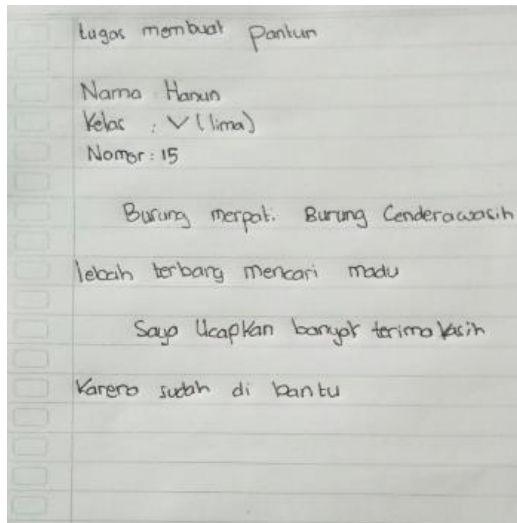 tugas membuat pantun
Nama Hanun
Kelas : V (lima)
Nomor : 15
Burung merpati. Burung Cenderawasih
lebah terbang mencari madu
Saya Ucapkan banyak terima kasih
Karena sudah di bantu